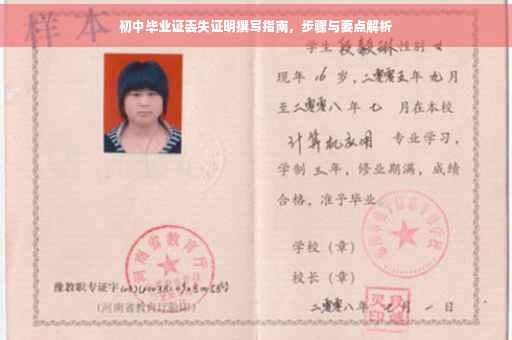 初中毕业证丢失证明撰写指南，步骤与要点解析
样本
学生 段毅琳 性别 女
现年 16 岁，二零零五年 九 月
至二零零八年 七 月在本校
计算机应用 专业学习，
学制 三 年，修业期满，成绩
合格，准予毕业
学校（章）
校长（章）
二零零八年 七 月 一 日
河南省教育厅
豫教职专证字
（河南省教育厅验印）